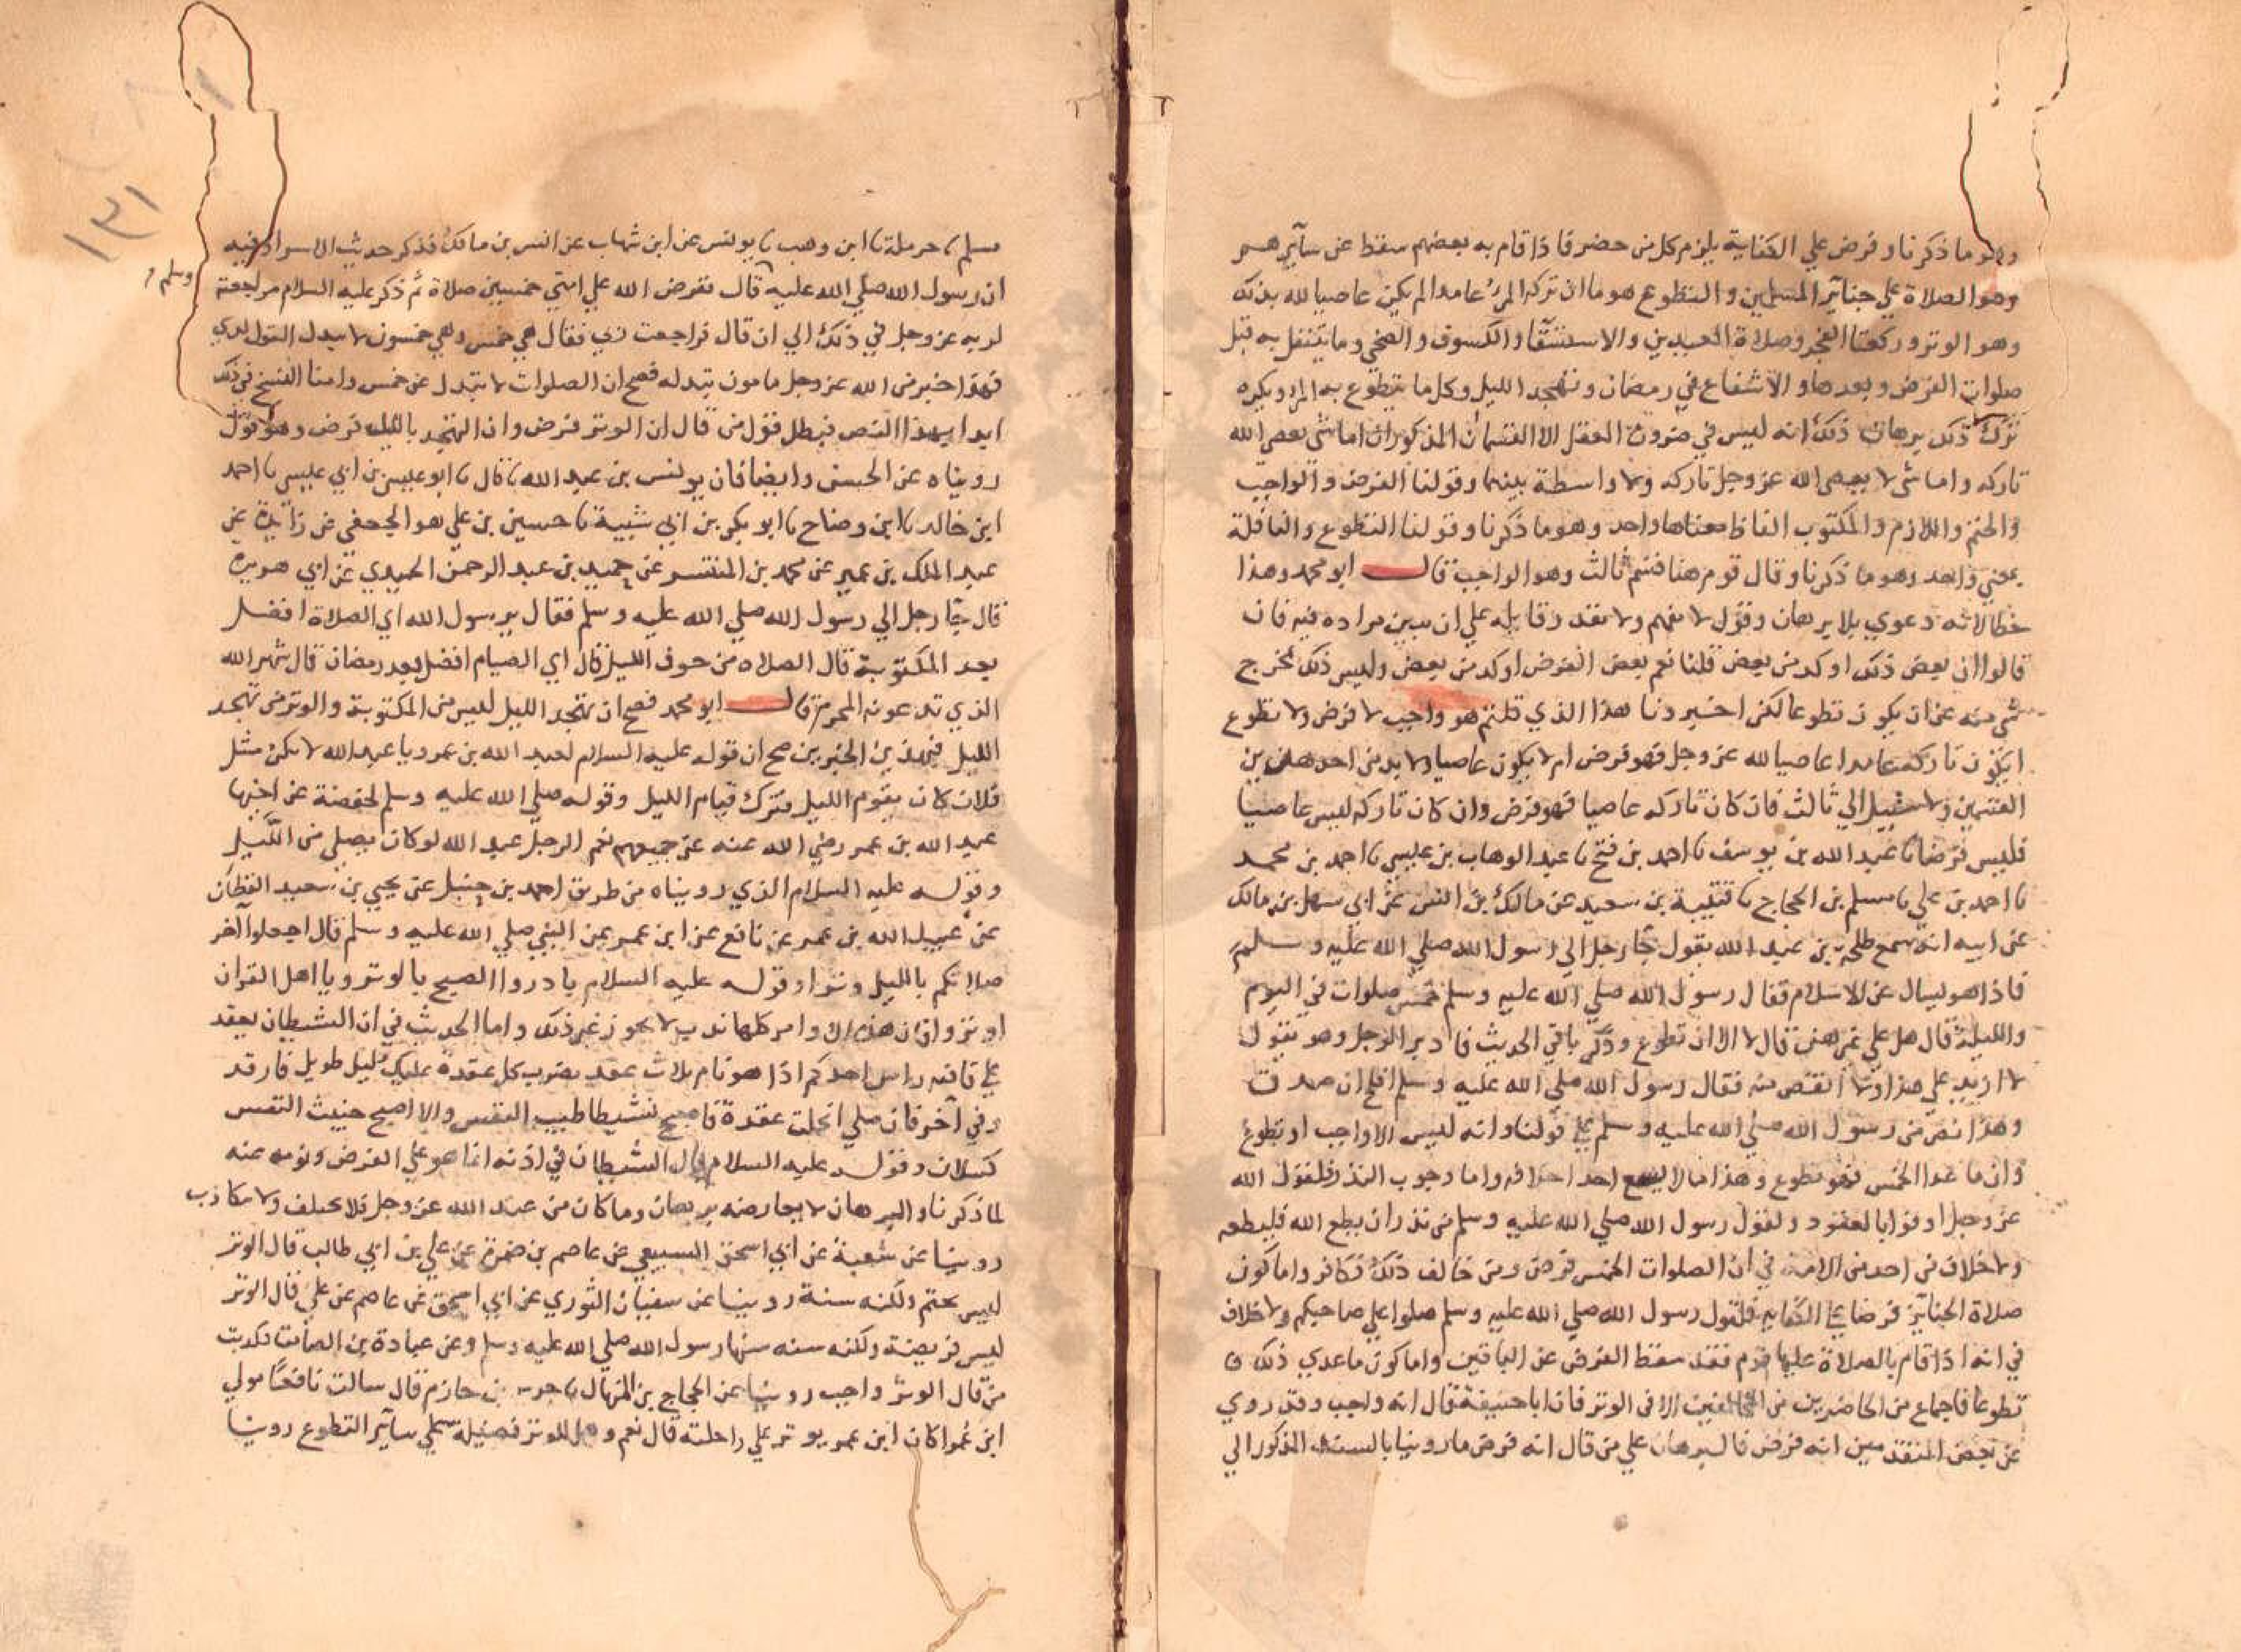 وهو ما ذكرنا وفرض علي الكفاية يلزم كل من حضر فاذا قام به بعضهم سقط عن سآيرهم
وهو الصلاة علي جنآيز المسلمين والتطوع هو ما ان تركه المرء عامدا لم يكن عاصيا لله بذلك
وهو الوتر وركعتا الفجر وصلاة العيدين والاستسقآ والكسوف والضحي وما يتنفل به قبل
صلوات الفرض وبعدها والاشفاع في رمضان وتهجد الليل وكل ما يتطوع به المرء ويكره
ترك ذلك برهان ذلك انه ليس في ضرورة العقل الا القسمان المذكوران اما شي يعصي الله
تاركه واما شي لا يعصي الله عز وجل تاركه ولا واسطة بينهما وقولنا الفرض والواجب
والحتم واللازم والمكتوب الفاظ معناها واحد وهو ما ذكرنا وقولنا التطوع والنافلة
بمعني واحد وهو ما ذكرنا وقال قوم هنا قسم ثالث وهو الواجب قال ابو محمد وهذا
خطا لانه دعوي بلا برهان وقول لا يفهم ولا يقدر قايله علي ان يبين مراده فيه فان
قالوا ان بعض ذلك اوكد من بعض قلنا نعم بعض الفرض اوكد من بعض وليس ذلك مخرج
شي منه عن ان يكون تطوعا لكن اخبرونا هذا الذي قلتم هو واجب لا فرض ولا تطوع
ايكون تاركه عامدا عاصيا لله عز وجل فهو فرض ام لا يكون عاصيا ولا بد من احد هذين
القسمين ولا سبيل الي ثالث فان كان تاركه عاصيا فهو فرض وان كان تاركه ليس عاصيا
فليس فرضا نا عبد الله بن يوسف نا احمد بن فتح نا عبد الوهاب بن عيسي نا احمد بن محمد
نا احمد بن علي نا مسلم بن الحجاج نا قتيبة بن سعيد عن مالك بن انس عن ابي سهل بن مالك
عن ابيه انه سمع طلحة بن عبد الله يقول جآ رجل الي رسول الله صلي الله عليه وسلم
فاذا هو يسال عن الاسلام فقال رسول الله صلي الله عليه وسلم خمس صلوات في اليوم
والليلة قال هل علي غيرهن قال لا الا ان تطوع وذكر باقي الحديث فادبر الرجل وهو يقول
لا ازيد علي هذا ولا انقص منه فقال رسول الله صلي الله عليه وسلم افلح ان صدق
وهذا نص من رسول الله صلي الله عليه وسلم علي قولنا وانه ليس الا واجب او تطوع
وان ما عدا الخمس فهو تطوع وهذا ما لا يسع احدا خلافه واما وجوب النذر فلقول الله
عز وجل اوفوا بالعقود ولقول رسول الله صلي الله عليه وسلم من نذر ان يطع الله فليطعه
ولا خلاف في احد من الامة في ان الصلوات الخمس فرض ومن خالف ذلك فكافر واما كون
صلاة الجنآيز فرضا علي الكفاية فلقول رسول الله صلي الله عليه وسلم صلوا علي صاحبكم ولا خلاف
في انه اذا قام بالصلاة عليها قوم فقد سقط الفرض عن الباقين واما كون ما عدي ذلك
تطوعا فاجماع من الحاضرين من المخالفين الا في الوتر فان ابا حنيفة قال انه واجب وقد روي
عن بعض المتقدمين انه فرض فالبرهان علي من قال انه فرض ما روينا بالسند المذكور الي
مسلم نا حرملة نا ابن وهب نا يونس عن ابن شهاب عن انس بن مالك فذكر حديث الاسرا وفيه
ان رسول الله صلي الله عليه قال ففرض الله علي امتي خمسين صلاة ثم ذكر عليه السلام مراجعته
وسلم
لربه عز وجل في ذلك الي ان قال فراجعت ربي فقال هي خمس وهي خمسون لا يبدل القول لدي
فهذا خبر من الله عز وجل مامون تبدله فصح ان الصلوات لا تبدل عن خمس وامنا النسخ في ذلك
ابدا بهذا النص فبطل قول من قال ان الوتر فرض وان التهجد بالليل فرض وهو قول
رويناه عن الحسن وايضا فان يونس بن عبد الله نا قال نا ابو عيسي بن ابي عيسي نا احمد
ابن خالد نا ابن وضاح نا ابو بكر بن ابي شيبة نا حسين بن علي هو الجعفي عن زايدة عن
عبد الملك بن عمير عن محمد بن المنتشر عن حميد بن عبد الرحمن الحميدي عن ابي هريرة
قال جآ رجل الي رسول الله صلي الله عليه وسلم فقال يرسول الله اي الصلاة افضل
بعد المكتوبة قال الصلاة من جوف الليل قال اي الصيام افضل بعد رمضان قال شهر الله
الذي تدعونه المحرم قال ابو محمد فصح ان تهجد الليل ليس من المكتوبة والوتر من تهجد
الليل فبهذين الخبرين صح ان قوله عليه السلام لعبد الله بن عمرو يا عبد الله لا تكن مثل
فلان كان يقوم الليل فترك قيام الليل وقوله صلي الله عليه وسلم لحفصة عن اخيها
عبد الله بن عمر رضي الله عنه عن جميعهم نعم الرجل عبد الله لو كان يصلي من الليل
وقوله عليه السلام الذي رويناه من طريق احمد بن حنبل عن يحيي بن سعيد القطان
عن عبيد الله بن عمر عن نافع عن ابن عمر عن النبي صلي الله عليه وسلم قال اجعلوا آخر
صلاتكم بالليل وترا وقوله عليه السلام بادروا الصبح بالوتر ويا اهل القران
اوتروا فان هذه الاوامر كلها ندب لا يجوز غير ذلك واما الحديث في ان الشيطان يعقد
علي قافيه راس احدكم اذا هو نام ثلاث عقد يضرب كل عقدة عليك ليل طويل فارقد
وفي آخر فان صلي انحلت عقدة فاصبح نشيطا طيب النفس والا اصبح خبيث النفس
كسلان وقوله عليه السلام بال الشيطان في اذنه انما هو علي الفرض ونومه عنه
لما ذكرنا والبرهان لا يعارضه برهان وما كان من عند الله عز وجل فلا يختلف ولا يتكاذب
روينا عن شعبة عن ابي اسحق السبيعي عن عاصم بن ضمرة عن علي بن ابي طالب قال الوتر
ليس بحتم ولكنه سنة روينا عن سفيان الثوري عن ابي اسحق عن عاصم عن علي قال الوتر
ليس فريضة ولكنه سنه سنها رسول الله صلي الله عليه وسلم وعن عبادة بن الصامت تكذيب
من قال الوتر واجب روينا عن الحجاج بن المنهال نا جرير بن حازم قال سالت نافعا مولي
ابن عمر اكان ابن عمر يوتر علي راحلته قال نعم وهل للوتر فضيلة علي سآير التطوع روينا
١٣١